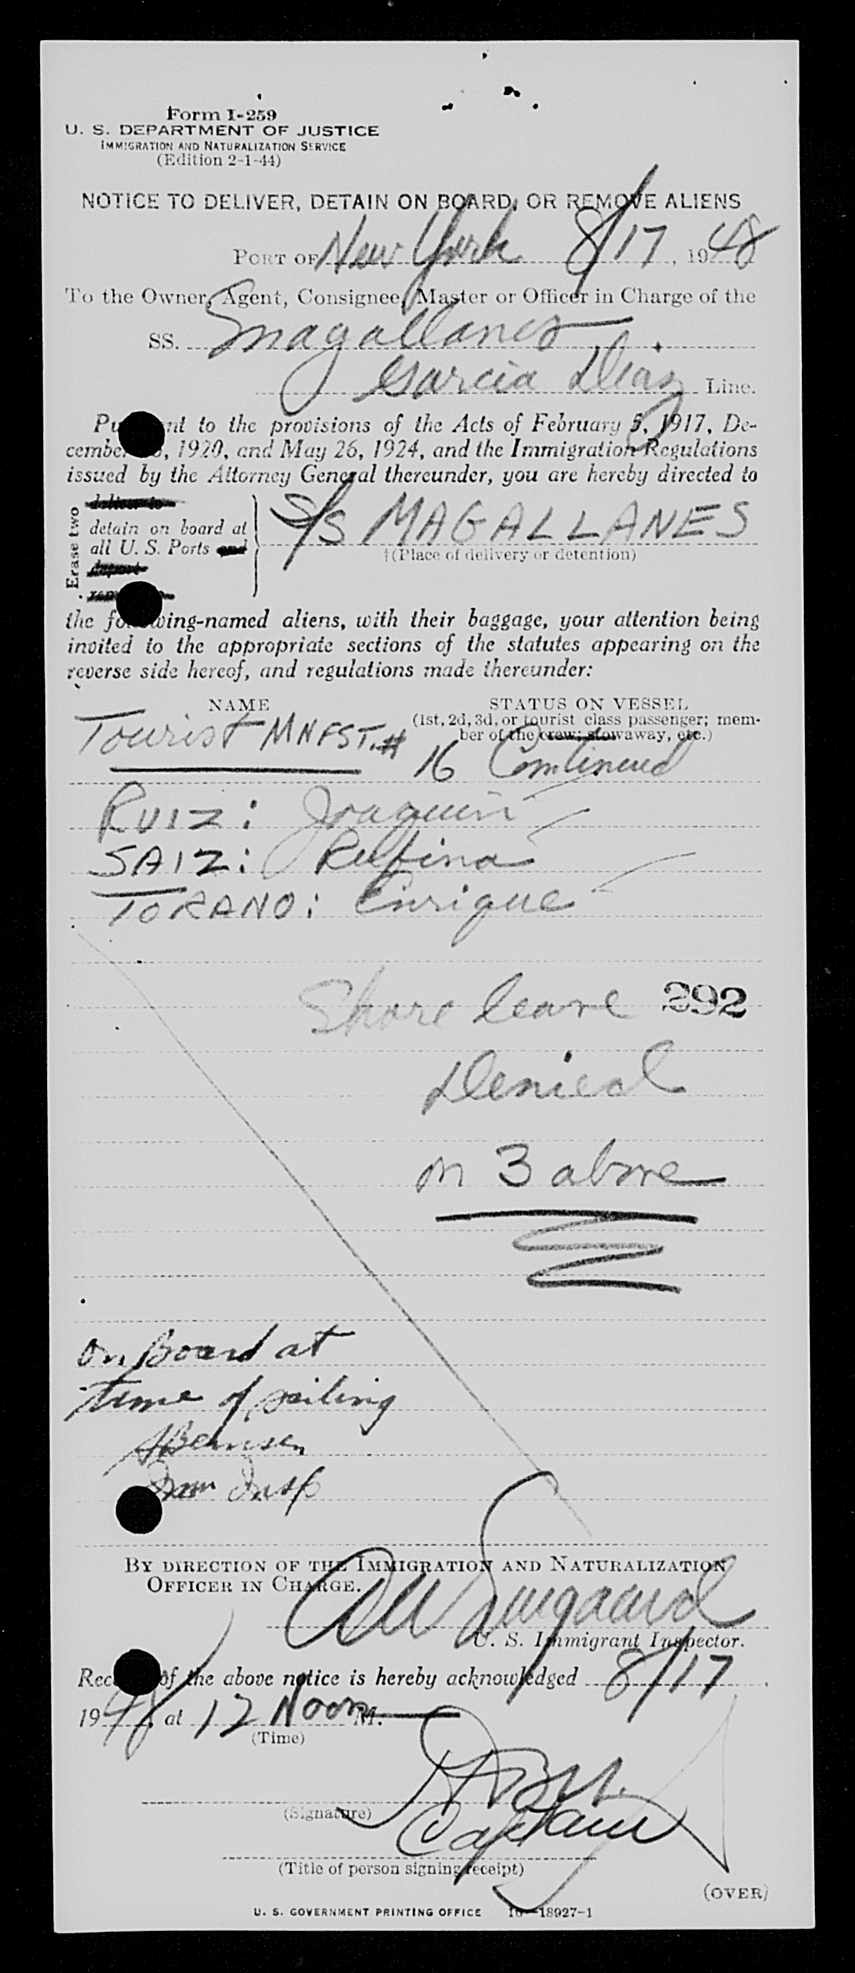 Form I-259
U. S. DEPARTMENT OF JUSTICE
IMMIGRATION AND NATURALIZATION SERVICE
(Edition 2-1-44)
NOTICE TO DELIVER, DETAIN ON BOARD, OR REMOVE ALIENS
PORT OF New York 8/17, 1948
To the Owner, Agent, Consignee, Master or Officer in Charge of the
SS. Magallanes
Garcia Diaz Line.
Pu nt to the provisions of the Acts of February 5, 1917, De-
cembe , 1920, and May 26, 1924, and the Immigration Regulations
issued by the Attorney General thereunder, you are hereby directed to
Erase two
deliver to
detain on board at
all U. S. Ports and
deport
S/S MAGALLANES
†(Place of delivery or detention)
the fo wing-named aliens, with their baggage, your attention being
invited to the appropriate sections of the statutes appearing on the
reverse side hereof, and regulations made thereunder:
NAME
STATUS ON VESSEL
(1st, 2d, 3d, or tourist class passenger; mem-
ber of the crew; stowaway, etc.)
Tourist MNFST. # 16 Continued
RUIZ: Joaquin
SAIZ: Rufina
TORANO: Enrique
Shore leave 292
Denied
on 3 above
on Board at
time of sailing
Imm Insp
BY DIRECTION OF THE IMMIGRATION AND NATURALIZATION
OFFICER IN CHARGE.
U. S. Immigrant Inspector.
Rec of the above notice is hereby acknowledged 8/17,
1948, at 12 Noon M.
(Time)
(Signature)
Captain
(Title of person signing receipt)
(OVER)
U. S. GOVERNMENT PRINTING OFFICE 16—18927-1